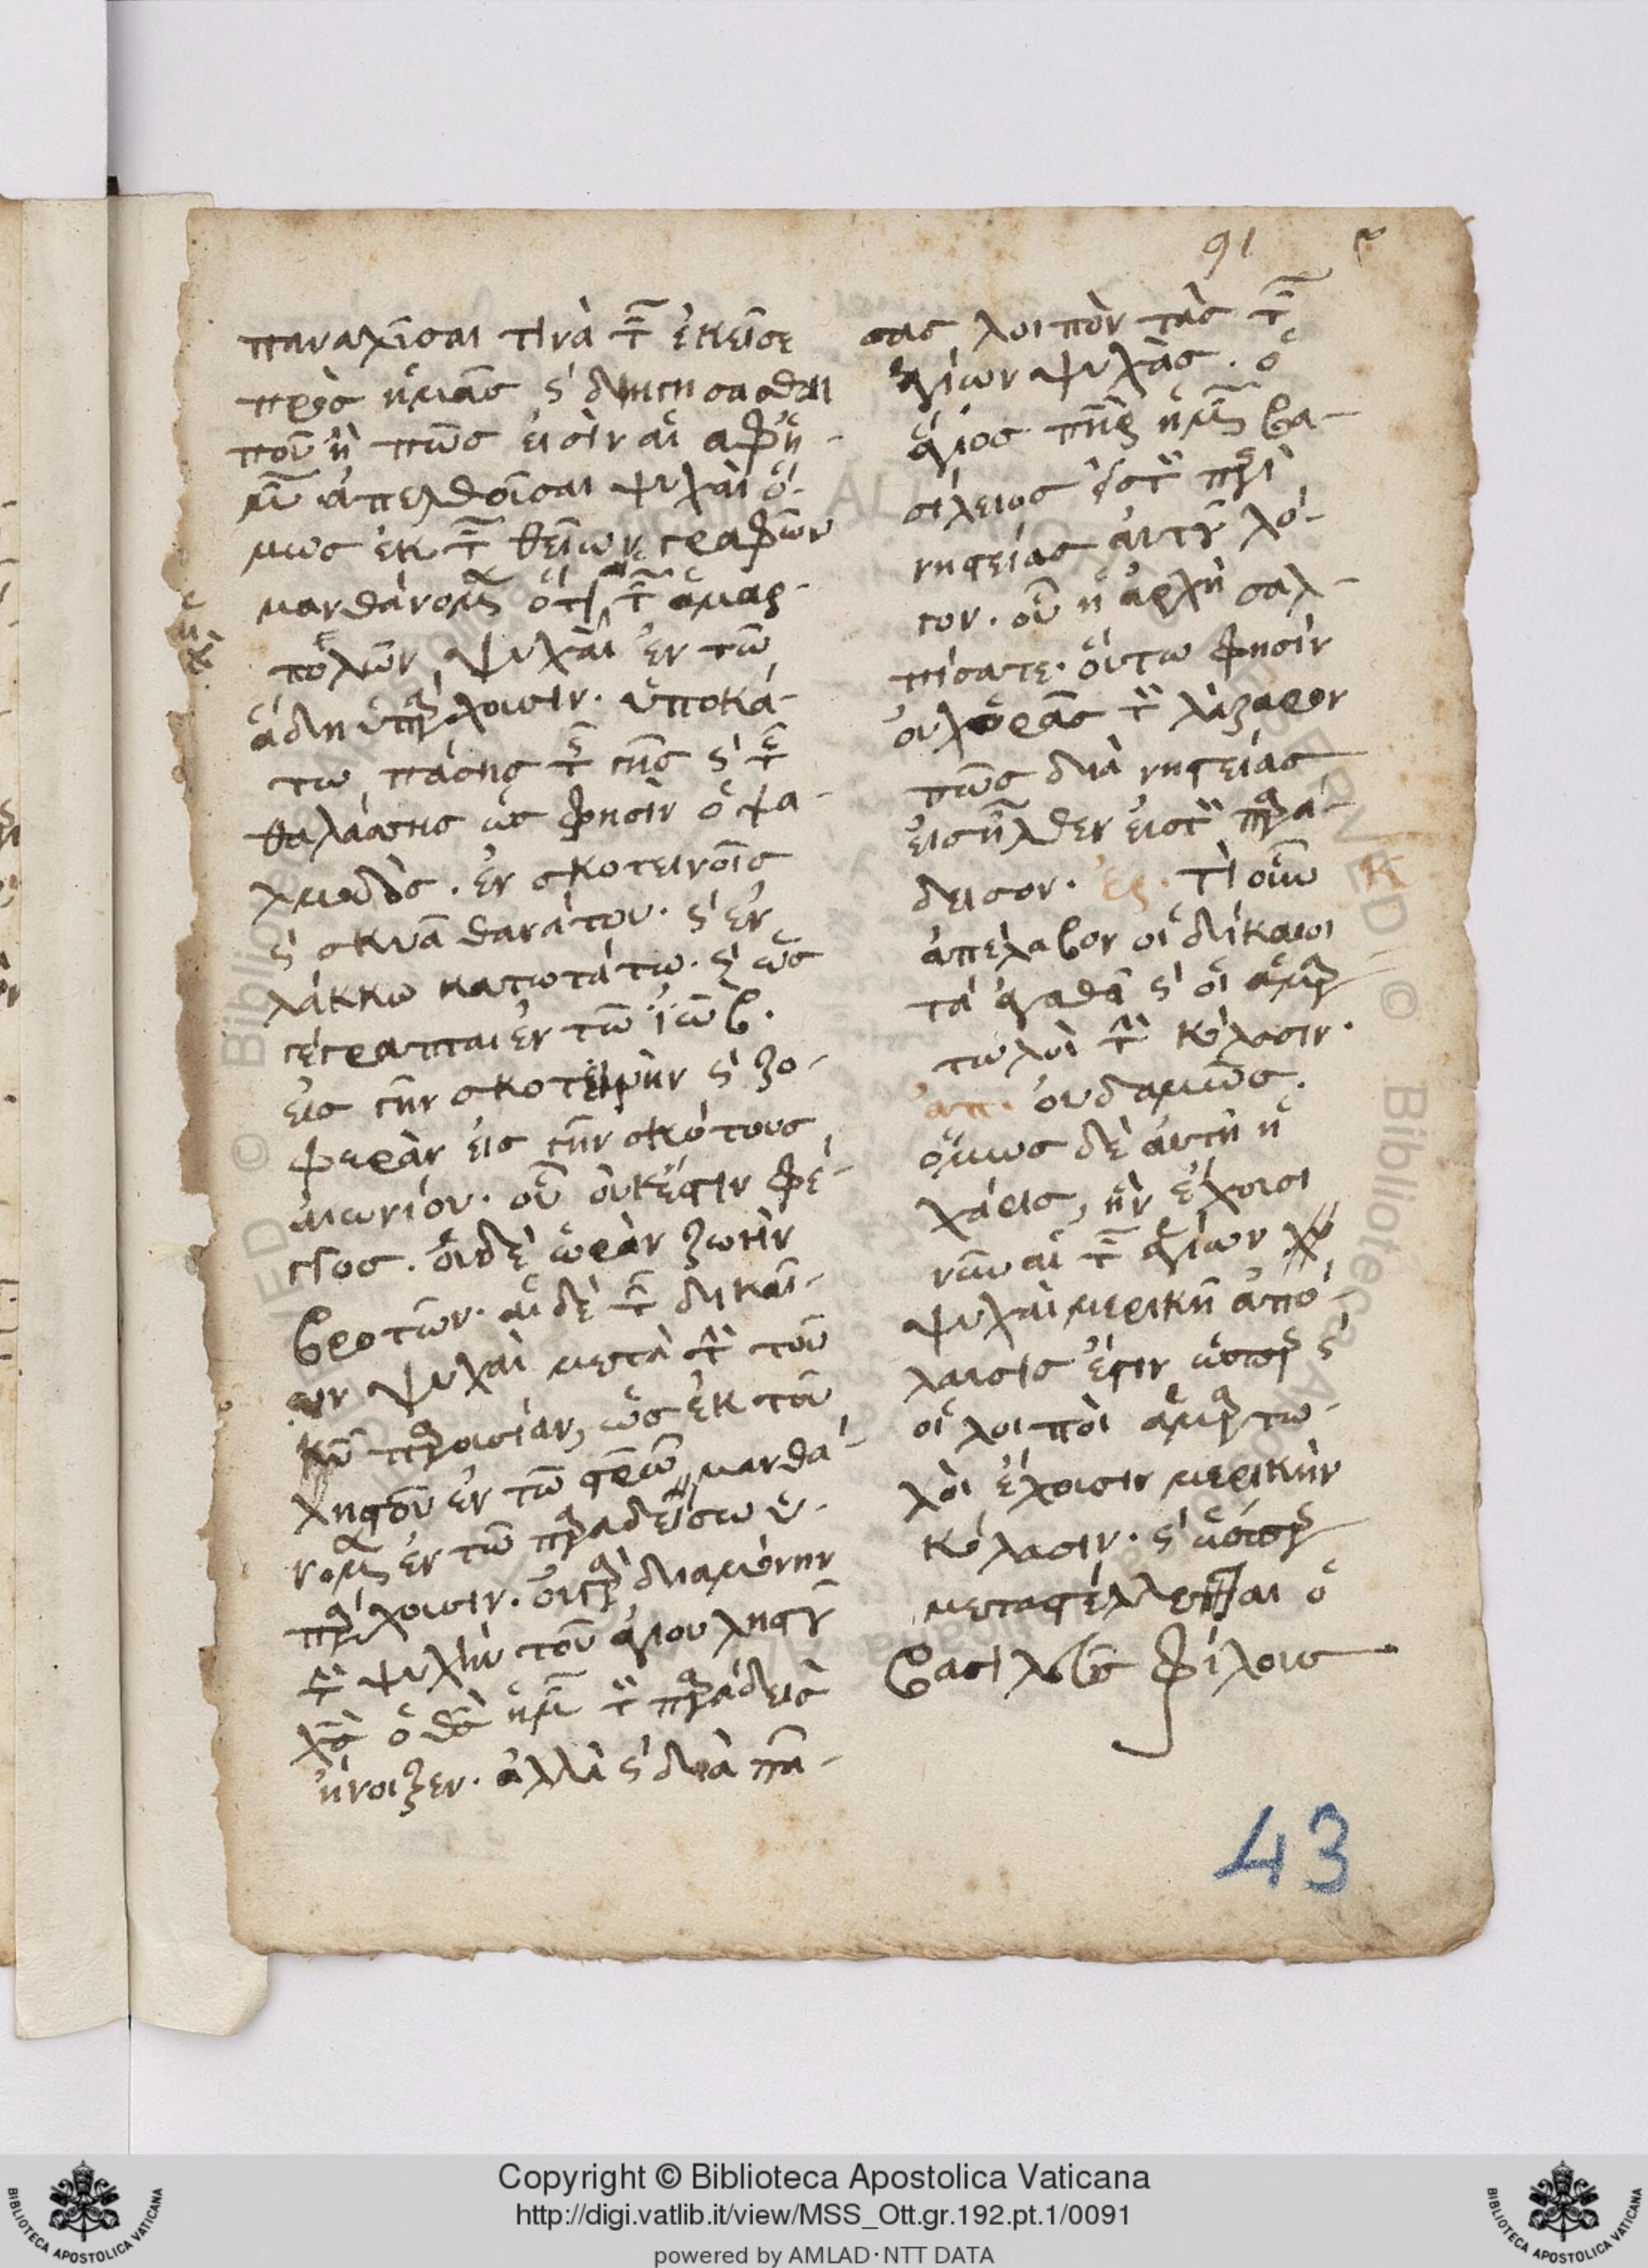 91
παναχῖσαι τινὰ τ͂ ἐκεῖσε
πρὸς ἡμᾶς ϗ διηγήσασθαι
ποῦ ἢ πῶς εἰσὶν αἱ ἀφ ἡ-
μῶν ἀπελθοῦσαι ψυχαὶ ὅ-
μως ἐκ τ͂ θείων γραφῶν
μανθάνομεν ὅτι τ͂ ἁμαρ-
τολῶν ψυχαὶ ἐν τῶ
ἅδη ὑπάρχουσιν. ὑποκά-
τω πάσης τ͂ γῆς ϗ τ͂
θαλάσσης ὥς φησὶν ὁ ψα-
λμωδὸς. ἐν σκοτεινοῖς
ϗ σκιᾶ θανάτου. ϗ ἐν
λάκκω κατωτάτω. ϗ ὡς
γέγραπται ἐν τῶ ἰὼβ.
εἰς γῆν σκοτεινὴν ϗ ζο-
φερὰν εἰς γῆν σκότους
αἰωνίου. οὗ οὐκ ἔστιν φέ-
γγος. οὐδὲ ὁρὰν ζωὴν
βροτῶν. αἱ δὲ τ͂ δικαί-
ων ψυχαὶ μετὰ τὴν τοῦ
χυ παρουσίαν, ὡς ἐκ τοῦ
ληστοῦ ἐν τῶ στρῶ μανθά-
νομεν ἐν τῶ παραδείσω ὑ-
πάρχουσιν. οὐ γὰρ διὰ μόνην
τὴν ψυχὴν τοῦ ἁγίου ληστοῦ
χς ὁ θς ἡμῶν τὸν παράδεισον
ἤνοιξεν. ἀλλὰ ϗ διὰ πά-
σας λοιπὸν τὰς τ͂
ἁγίων ψυχὰς. ὁ
ἅγιος πηρ ἡμῶν βα-
σίλειος εἰς τὸν περὶ
νηστείας αὐτοῦ λό-
γον. οὗ ἡ ἀρχὴ σαλ-
πίσατε. οὕτω φησὶν
οὐχ ὁρᾶς τὸν λάζαρον
πῶς διὰ νηστείας
εἰσῆλθεν εἰς τὸν παρά-
δεισον. ἐρ. Τί οὖν
ἀπέλαβον οἱ δίκαιοι
τὰ ἀγαθὰ ϗ οἱ ἁμαρ-
τωλοὶ τὴν κόλασιν.
ἀπ. οὐδαμῶς.
ὅμως δὲ αὐτὴ ἡ
χάρις, ἣν ἔχουσι
νῦν αἱ τ͂ ἁγίων
ψυχαὶ μερικὴ ἀπό-
λαυσις ἔστιν ὥσπερ ϗ
οἱ λοιποὶ ἁμαρτω-
λοὶ ἔχουσιν μερικὴν
κόλασιν. ϗ ὥσπερ
μεταστέλλεται ὁ
βασιλεὺς φίλους
43
Copyright © Biblioteca Apostolica Vaticana
http://digi.vatlib.it/view/MSS_Ott.gr.192.pt.1/0091
powered by AMLAD·NTT DATA